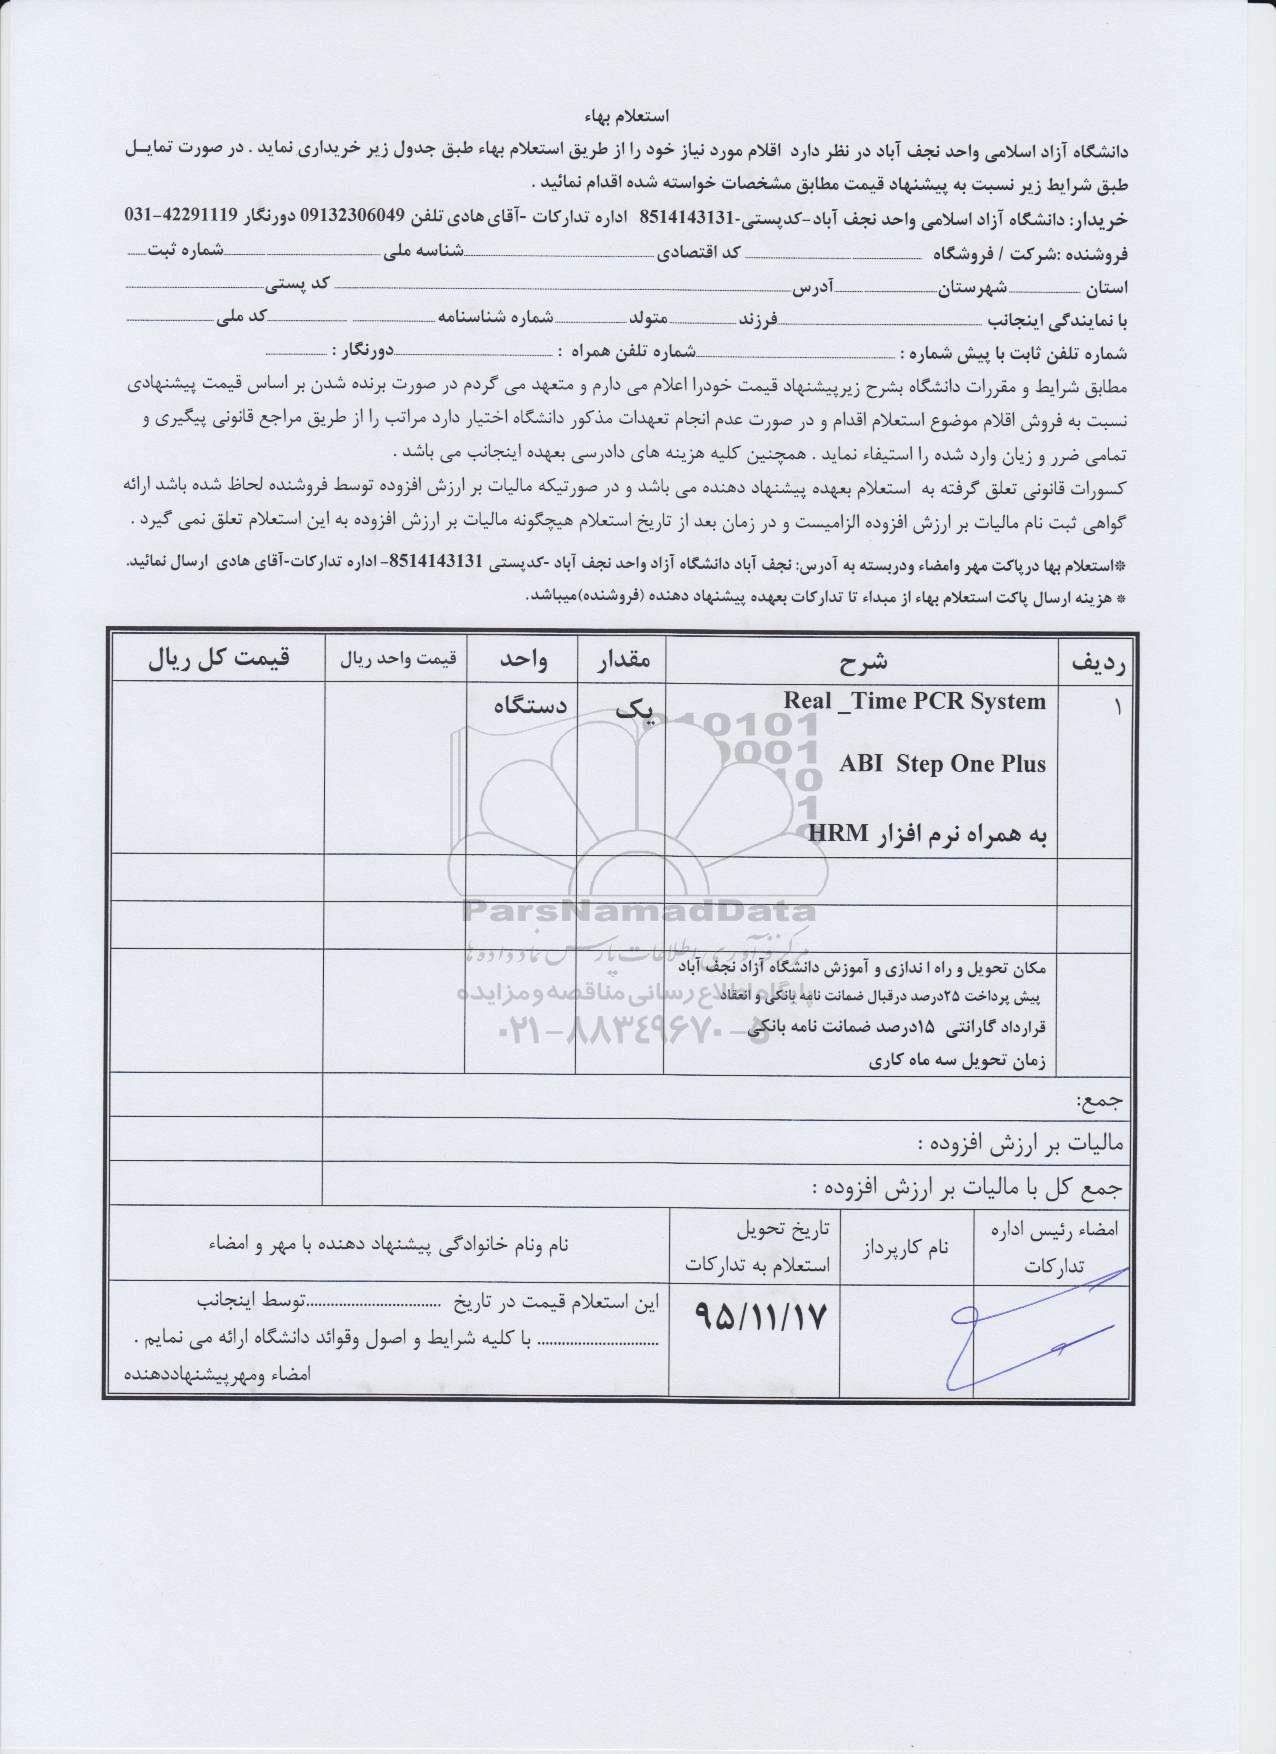 استعلام بهاء
دانشگاه آزاد اسلامی واحد نجف آباد در نظر دارد اقلام مورد نیاز خود را از طریق استعلام بهاء طبق جدول زیر خریداری نماید . در صورت تمایـل
طبق شرایط زیر نسبت به پیشنهاد قیمت مطابق مشخصات خواسته شده اقدام نمائید .
خریدار: دانشگاه آزاد اسلامی واحد نجف آباد-کدپستی-8514143131 اداره تدارکات -آقای هادی تلفن 09132306049 دورنگار 42291119-031
فروشنده :شرکت / فروشگاه کد اقتصادی شناسه ملی شماره ثبت
استان شهرستان آدرس کد پستی
با نمایندگی اینجانب فرزند متولد شماره شناسنامه کد ملی
شماره تلفن ثابت با پیش شماره : شماره تلفن همراه : دورنگار :
مطابق شرایط و مقررات دانشگاه بشرح زیرپیشنهاد قیمت خودرا اعلام می دارم و متعهد می گردم در صورت برنده شدن بر اساس قیمت پیشنهادی
نسبت به فروش اقلام موضوع استعلام اقدام و در صورت عدم انجام تعهدات مذکور دانشگاه اختیار دارد مراتب را از طریق مراجع قانونی پیگیری و
تمامی ضرر و زیان وارد شده را استیفاء نماید . همچنین کلیه هزینه های دادرسی بعهده اینجانب می باشد .
کسورات قانونی تعلق گرفته به استعلام بعهده پیشنهاد دهنده می باشد و در صورتیکه مالیات بر ارزش افزوده توسط فروشنده لحاظ شده باشد ارائه
گواهی ثبت نام مالیات بر ارزش افزوده الزامیست و در زمان بعد از تاریخ استعلام هیچگونه مالیات بر ارزش افزوده به این استعلام تعلق نمی گیرد .
*استعلام بها درپاکت مهر وامضاء ودربسته به آدرس: نجف آباد دانشگاه آزاد واحد نجف آباد -کدپستی 8514143131- اداره تدارکات-آقای هادی ارسال نمائید.
* هزینه ارسال پاکت استعلام بهاء از مبداء تا تدارکات بعهده پیشنهاد دهنده (فروشنده)میباشد.
ردیف شرح مقدار واحد قیمت واحد ریال قیمت کل ریال
۱ Real _Time PCR System یک دستگاه
ABI Step One Plus
به همراه نرم افزار HRM
ParsNamadData
مرکز فرآوری اطلاعات پارس نماد داده ها
پایگاه اطلاع رسانی مناقصه و مزایده
۰۲۱-۸۸۳۴۹۶۷۰-۵
مکان تحویل و راه ا ندازی و آموزش دانشگاه آزاد نجف آباد
پیش پرداخت ۲۵درصد درقبال ضمانت نامه بانکی و انعقاد
قرارداد گارانتی ۱۵درصد ضمانت نامه بانکی
زمان تحویل سه ماه کاری
جمع:
مالیات بر ارزش افزوده :
جمع کل با مالیات بر ارزش افزوده :
امضاء رئیس اداره
تدارکات
نام کارپرداز
تاریخ تحویل
استعلام به تدارکات
نام ونام خانوادگی پیشنهاد دهنده با مهر و امضاء
۹۵/۱۱/۱۷
این استعلام قیمت در تاریخ ................................توسط اینجانب
............................. با کلیه شرایط و اصول وقوائد دانشگاه ارائه می نمایم .
امضاء ومهرپیشنهاددهنده